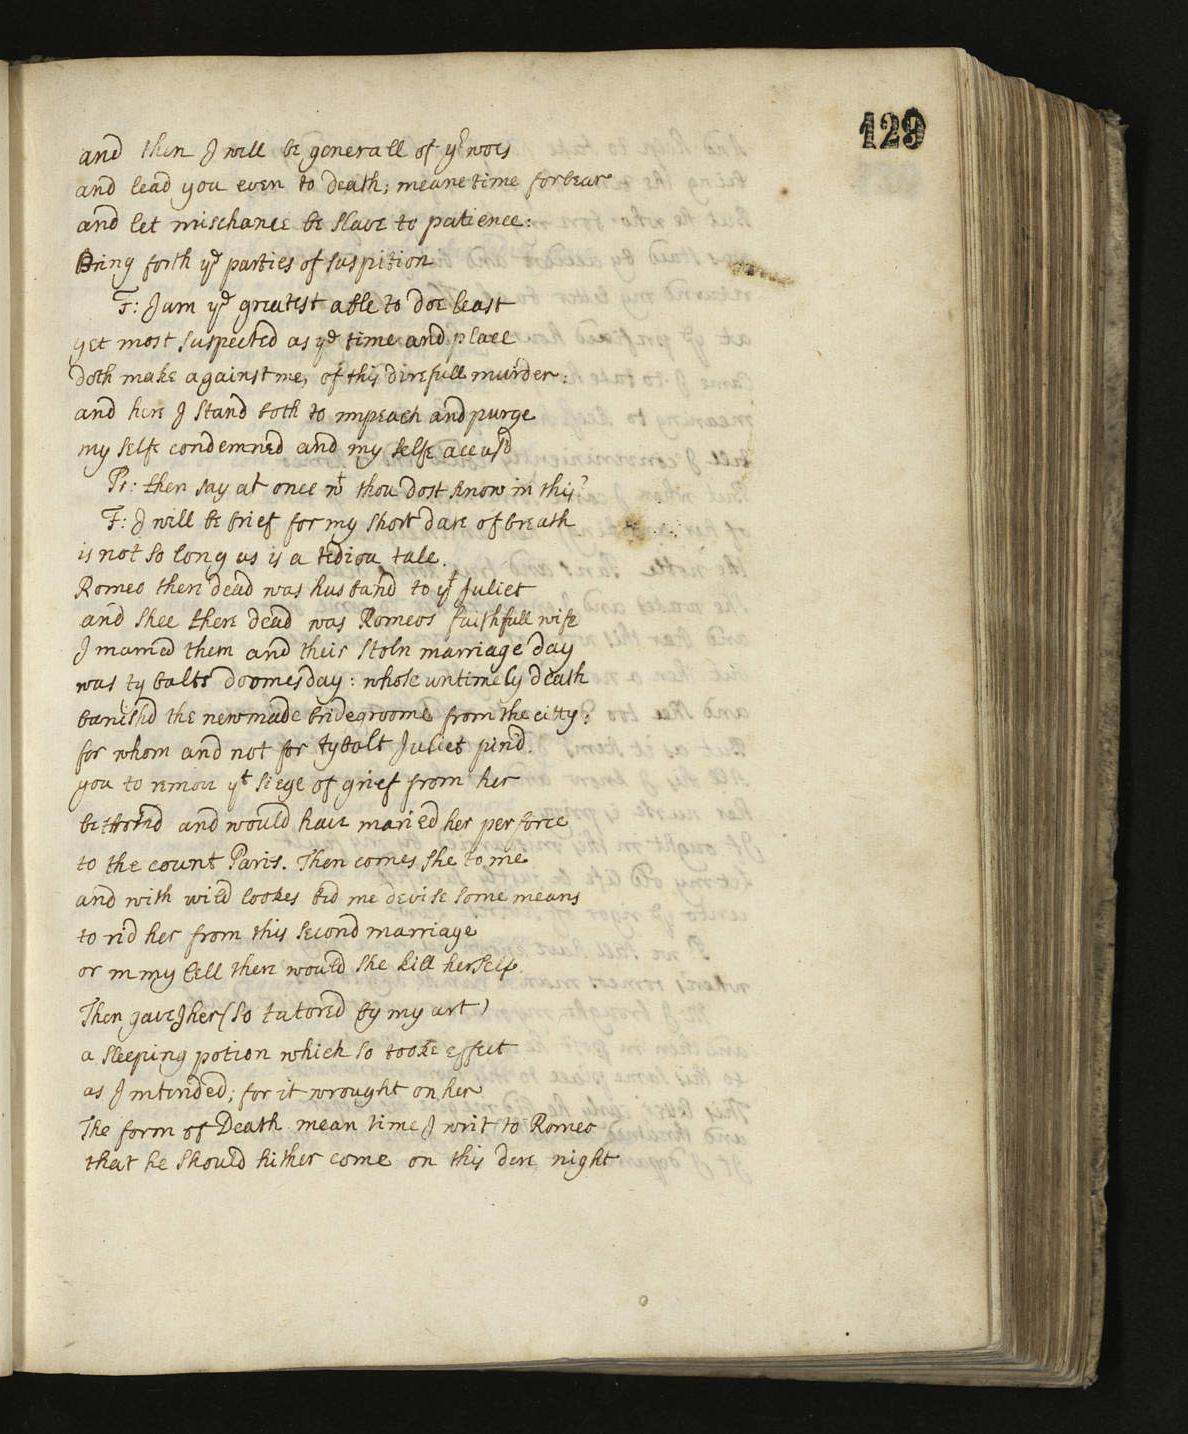 129
and then I will be generall of yr woes
and lead you even to death; meane time forbear
and let mischance be slave to patience:
Bring forth ye parties of suspition
F: I am ye greatest able to doe least
yet most suspected as ye time and place
doth make against me, of this direfull murder:
and here I stand both to impeach and purge
my selfe condemned and my selfe accusd
Pr: then say at once wt thou dost know in this?
F: I will be brief for my short date of breath
is not so long as is a tediou tale.
Romeo there dead was husband to yt Juliet
and shee there dead was Romeos faithfull wife
I married them and their stoln marriage day
was tybalts doomesday: whose untimely death
banishd the newmade bridegroome from the citty:
for whom and not for tybolt Juliet pind.
you to remou yt siege of grief from her
bethothd and would haue maried her perforce
to the count Paris. Then comes she to me
and with wild lookes bid me devise some means
to rid her from this second marriage
or in my Cell there would she kill herself.
Then gave I her (so tutored by my art)
a sleeping potion which so tooke effect
as I intended; for it wrought on her
The form of Death mean time I writ to Romeo
that he should hither come on this dire night